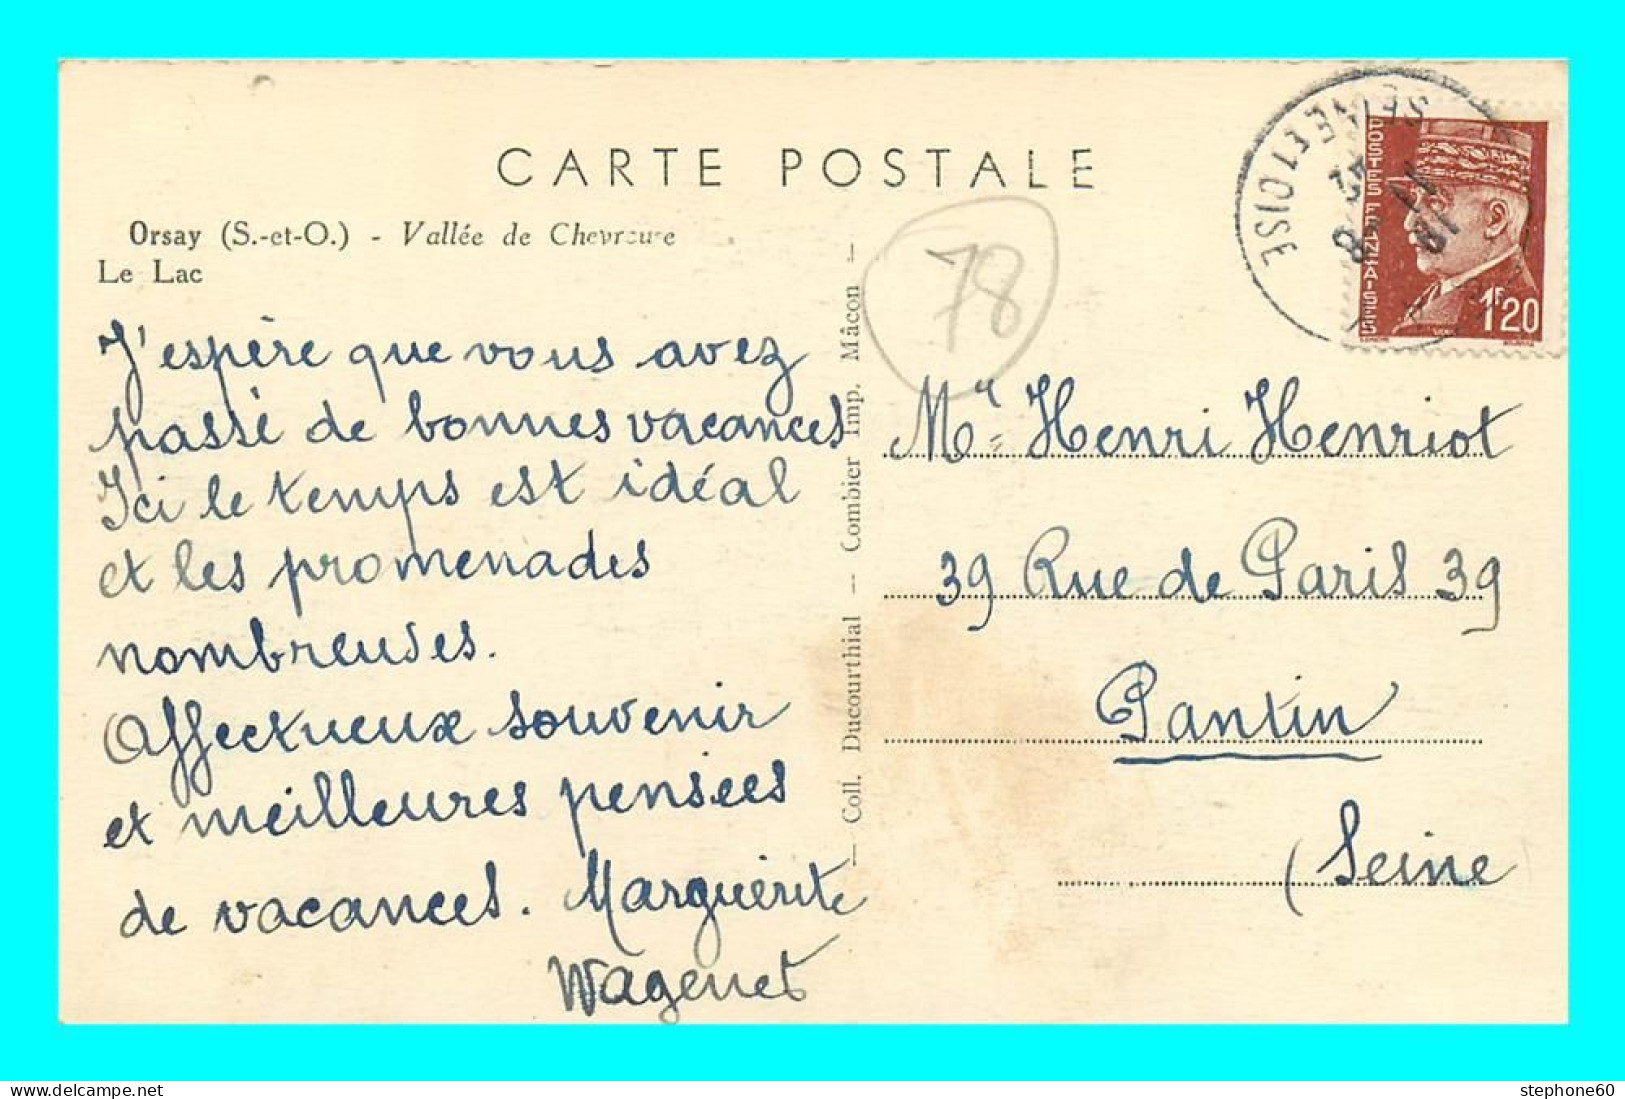 CARTE POSTALE
Orsay (S.-et-O.) - Vallée de Chevreuse
Le Lac
J'espère que vous avez
passé de bonnes vacances
Ici le temps est idéal
et les promenades
nombreuses.
Affectueux souvenir
et meilleures pensées
de vacances. Marguerite
Wagenet
— Coll. Ducourthial — Combier Imp. Mâcon —
78
SEINE ET OISE
POSTES FRANÇAISES
1F20
Mr Henri Henriot
39 Rue de Paris 39
Pantin
(Seine
stephone60